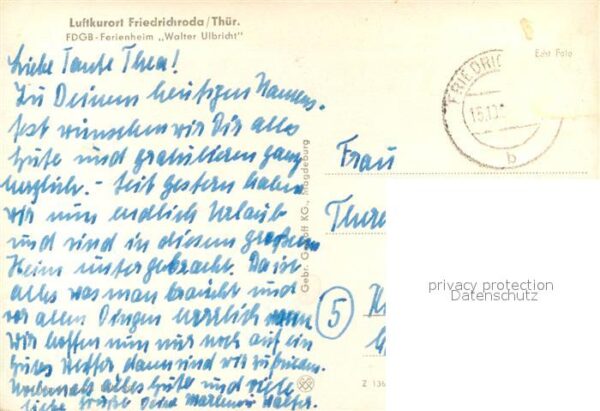 Luftkurort Friedrichroda/Thür.
FDGB-Ferienheim „Walter Ulbricht"
Echt Foto
Liebe Tante Thea!
Zu Deinem heutigen Namens-
fest wünschen wir Dir alles
Gute und gratulieren ganz
herzlich. – Seit gestern haben
wir nun endlich Urlaub
und sind in diesem großen
Heim untergebracht. Da ist
alles was man braucht und
vor allen Dingen herrlich
Wir hoffen nun nur noch auf ein
gutes Wetter dann sind wir zufrieden.
Nochmals alles Gute und viele
liebe Grüße Deine Walter.
FRIEDRIC
15.10.
b
Frau
There
5
Gebr. Garloff KG., Magdeburg
Z 136
privacy protection
Datenschutz